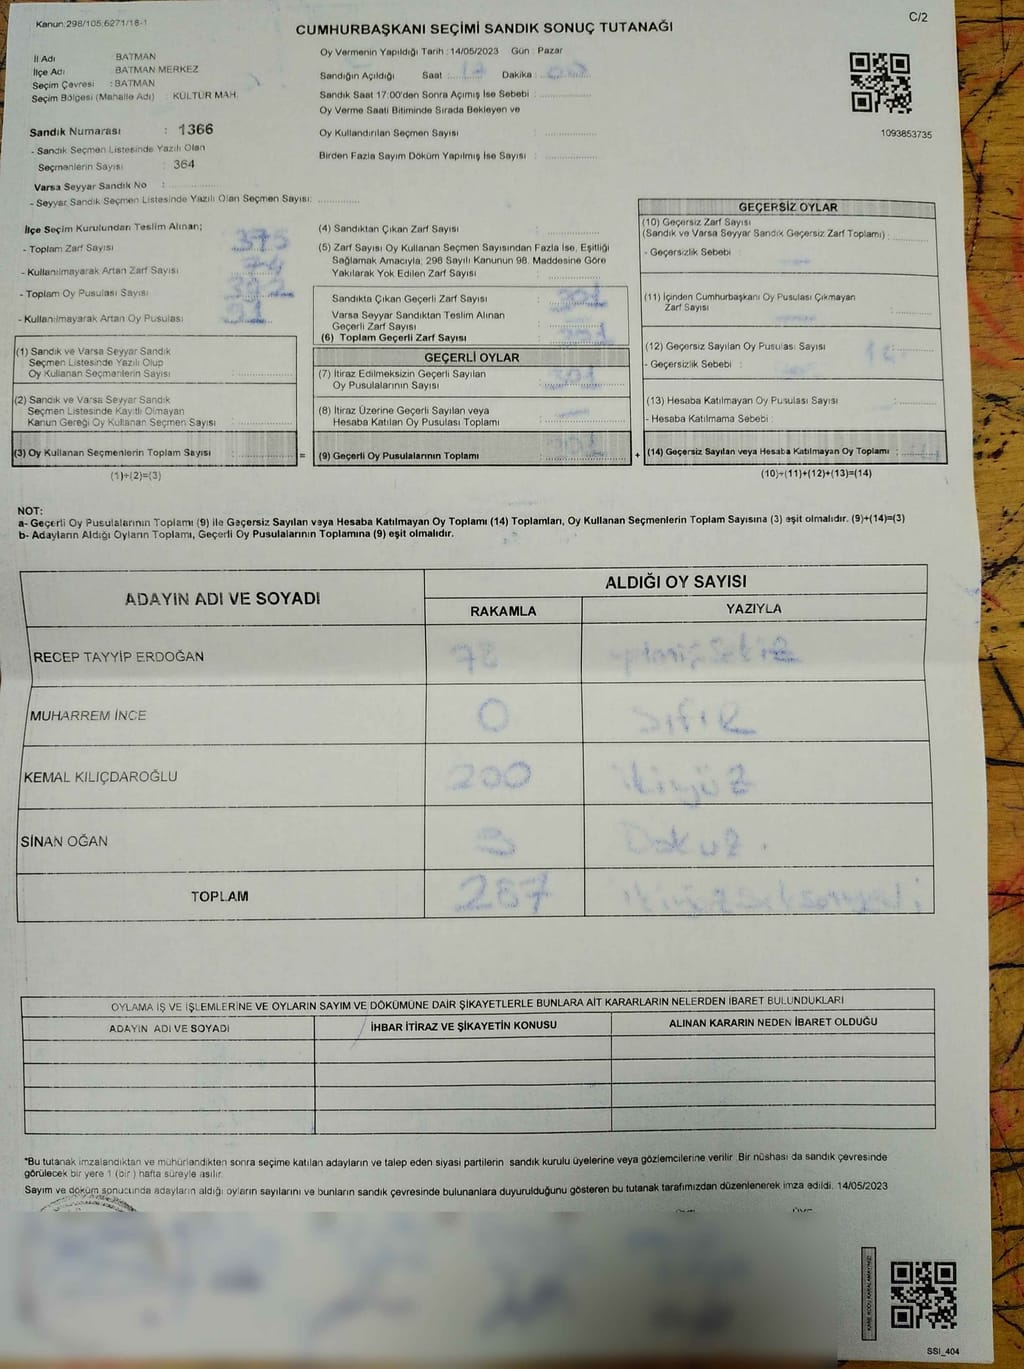 Kanun:298/105;6271/18-1
C/2
CUMHURBAŞKANI SEÇİMİ SANDIK SONUÇ TUTANAĞI
İl Adı : BATMAN
İlçe Adı : BATMAN MERKEZ
Seçim Çevresi : BATMAN
Seçim Bölgesi (Mahalle Adı) : KÜLTÜR MAH.
Sandık Numarası : 1366
- Sandık Seçmen Listesinde Yazılı Olan
Seçmenlerin Sayısı : 364
Varsa Seyyar Sandık No :
- Seyyar Sandık Seçmen Listesinde Yazılı Olan Seçmen Sayısı:
Oy Vermenin Yapıldığı Tarih : 14/05/2023 Gün : Pazar
Sandığın Açıldığı Saat : 17 Dakika : 00
Sandık Saat 17:00'den Sonra Açımış İse Sebebi :
Oy Verme Saati Bitiminde Sırada Bekleyen ve
Oy Kullandırılan Seçmen Sayısı :
Birden Fazla Sayım Döküm Yapılmış İse Sayısı :
1093853735
İlçe Seçim Kurulundan Teslim Alınan;
- Toplam Zarf Sayısı : 375
- Kullanılmayarak Artan Zarf Sayısı : 74
- Toplam Oy Pusulası Sayısı : 392
- Kullanılmayarak Artan Oy Pusulası : 91
(1) Sandık ve Varsa Seyyar Sandık
Seçmen Listesinde Yazılı Olup
Oy Kullanan Seçmenlerin Sayısı :
(2) Sandık ve Varsa Seyyar Sandık
Seçmen Listesinde Kayıtlı Olmayan
Kanun Gereği Oy Kullanan Seçmen Sayısı :
(3) Oy Kullanan Seçmenlerin Toplam Sayısı :
(1)+(2)=(3)
=
(4) Sandıktan Çıkan Zarf Sayısı :
(5) Zarf Sayısı Oy Kullanan Seçmen Sayısından Fazla İse, Eşitliği
Sağlamak Amacıyla, 298 Sayılı Kanunun 98. Maddesine Göre
Yakılarak Yok Edilen Zarf Sayısı :
Sandıkta Çıkan Geçerli Zarf Sayısı : 301
Varsa Seyyar Sandıktan Teslim Alınan
Geçerli Zarf Sayısı :
(6) Toplam Geçerli Zarf Sayısı : 301
GEÇERLİ OYLAR
(7) İtiraz Edilmeksizin Geçerli Sayılan
Oy Pusulalarının Sayısı : 301
(8) İtiraz Üzerine Geçerli Sayılan veya
Hesaba Katılan Oy Pusulası Toplamı :
(9) Geçerli Oy Pusulalarının Toplamı : 301
+
GEÇERSİZ OYLAR
(10) Geçersiz Zarf Sayısı
(Sandık ve Varsa Seyyar Sandık Geçersiz Zarf Toplamı) :
- Geçersizlik Sebebi :
(11) İçinden Cumhurbaşkanı Oy Pusulası Çıkmayan
Zarf Sayısı :
(12) Geçersiz Sayılan Oy Pusulası Sayısı : 14
- Geçersizlik Sebebi :
(13) Hesaba Katılmayan Oy Pusulası Sayısı :
- Hesaba Katılmama Sebebi :
(14) Geçersiz Sayılan veya Hesaba Katılmayan Oy Toplamı :
(10)+(11)+(12)+(13)=(14)
NOT:
a- Geçerli Oy Pusulalarının Toplamı (9) ile Geçersiz Sayılan veya Hesaba Katılmayan Oy Toplamı (14) Toplamları, Oy Kullanan Seçmenlerin Toplam Sayısına (3) eşit olmalıdır. (9)+(14)=(3)
b- Adayların Aldığı Oyların Toplamı, Geçerli Oy Pusulalarının Toplamına (9) eşit olmalıdır.
ADAYIN ADI VE SOYADI
ALDIĞI OY SAYISI
RAKAMLA YAZIYLA
RECEP TAYYİP ERDOĞAN 78 yetmişsekiz
MUHARREM İNCE 0 SIFIR
KEMAL KILIÇDAROĞLU 200 ikiyüz
SİNAN OĞAN 9 Dokuz.
TOPLAM 287 ikiyüzseksenyedi
OYLAMA İŞ VE İŞLEMLERİNE VE OYLARIN SAYIM VE DÖKÜMÜNE DAİR ŞİKAYETLERLE BUNLARA AİT KARARLARIN NELERDEN İBARET BULUNDUKLARI
ADAYIN ADI VE SOYADI İHBAR İTİRAZ VE ŞİKAYETİN KONUSU ALINAN KARARIN NEDEN İBARET OLDUĞU
*Bu tutanak imzalandıktan ve mühürlendikten sonra seçime katılan adayların ve talep eden siyasi partilerin sandık kurulu üyelerine veya gözlemcilerine verilir. Bir nüshası da sandık çevresinde
görülecek bir yere 1 (bir) hafta süreyle asılır.
Sayım ve döküm sonucunda adayların aldığı oyların sayılarını ve bunların sandık çevresinde bulunanlara duyurulduğunu gösteren bu tutanak tarafımızdan düzenlenerek imza edildi. 14/05/2023
KARE KODU KARALAMAYINIZ!
SSI_404